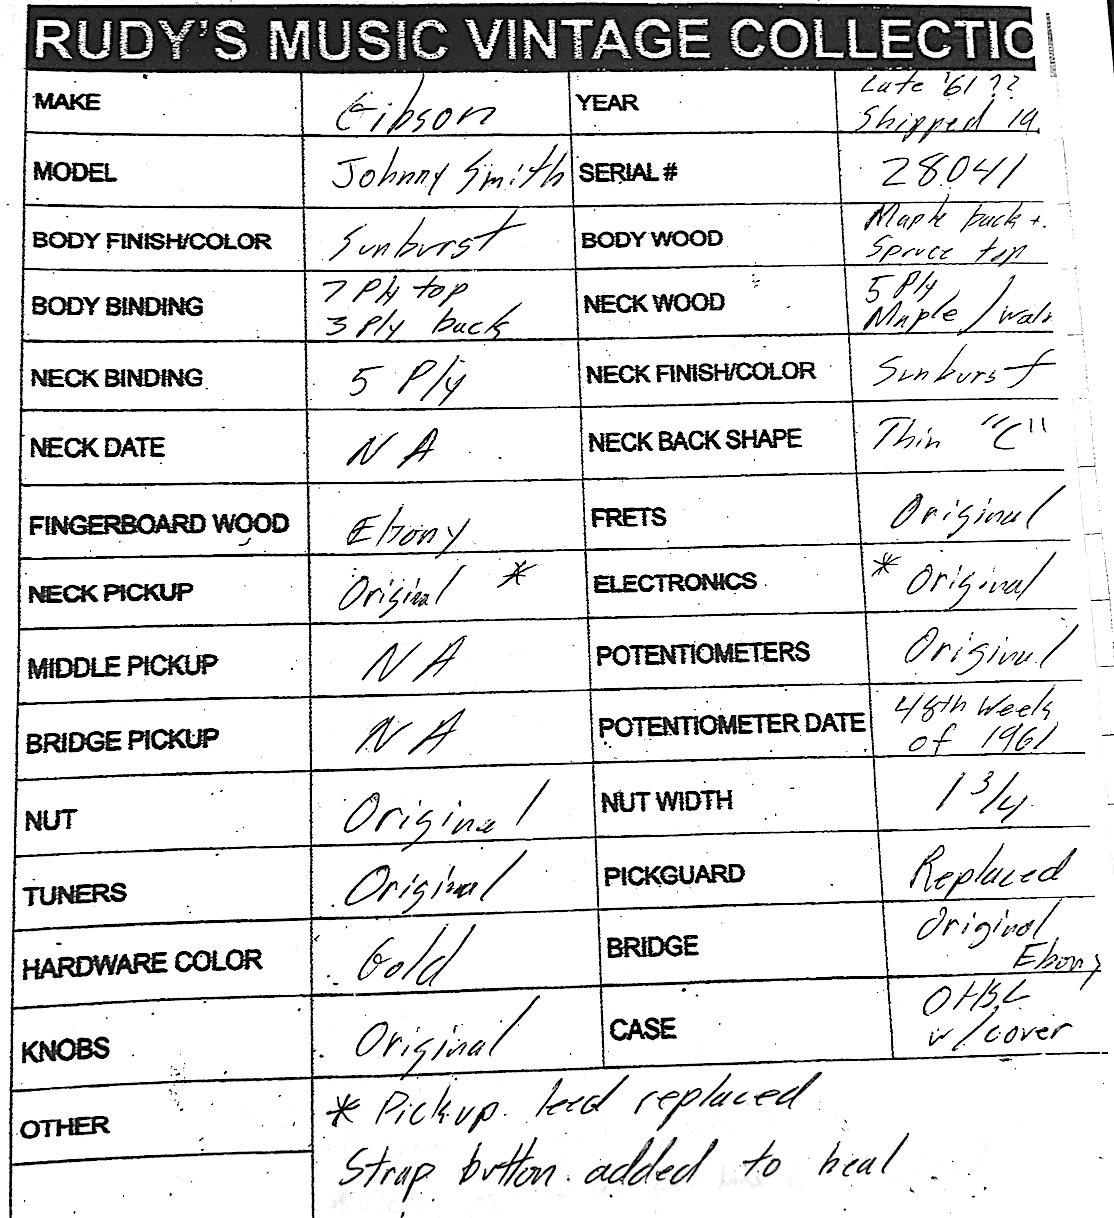 RUDY'S MUSIC VINTAGE COLLECTIO
MAKE Gibson YEAR Late '61 ??
Shipped 19
MODEL Johnny Smith SERIAL # 28041
BODY FINISH/COLOR Sunburst BODY WOOD Maple back +
Spruce top
BODY BINDING 7 Ply top
3 Ply back
NECK WOOD 5 Ply
Maple / waln
NECK BINDING 5 Ply NECK FINISH/COLOR Sunburst
NECK DATE NA NECK BACK SHAPE Thin "C"
FINGERBOARD WOOD Ebony FRETS Original
NECK PICKUP Original * ELECTRONICS * Original
MIDDLE PICKUP NA POTENTIOMETERS Original
BRIDGE PICKUP NA POTENTIOMETER DATE 48th Week
of 1961
NUT Original NUT WIDTH 1 3/4
TUNERS Original PICKGUARD Replaced
HARDWARE COLOR Gold BRIDGE Original
Ebony
KNOBS Original CASE OHSC
w/cover
OTHER * Pickup lead replaced
Strap button added to heal